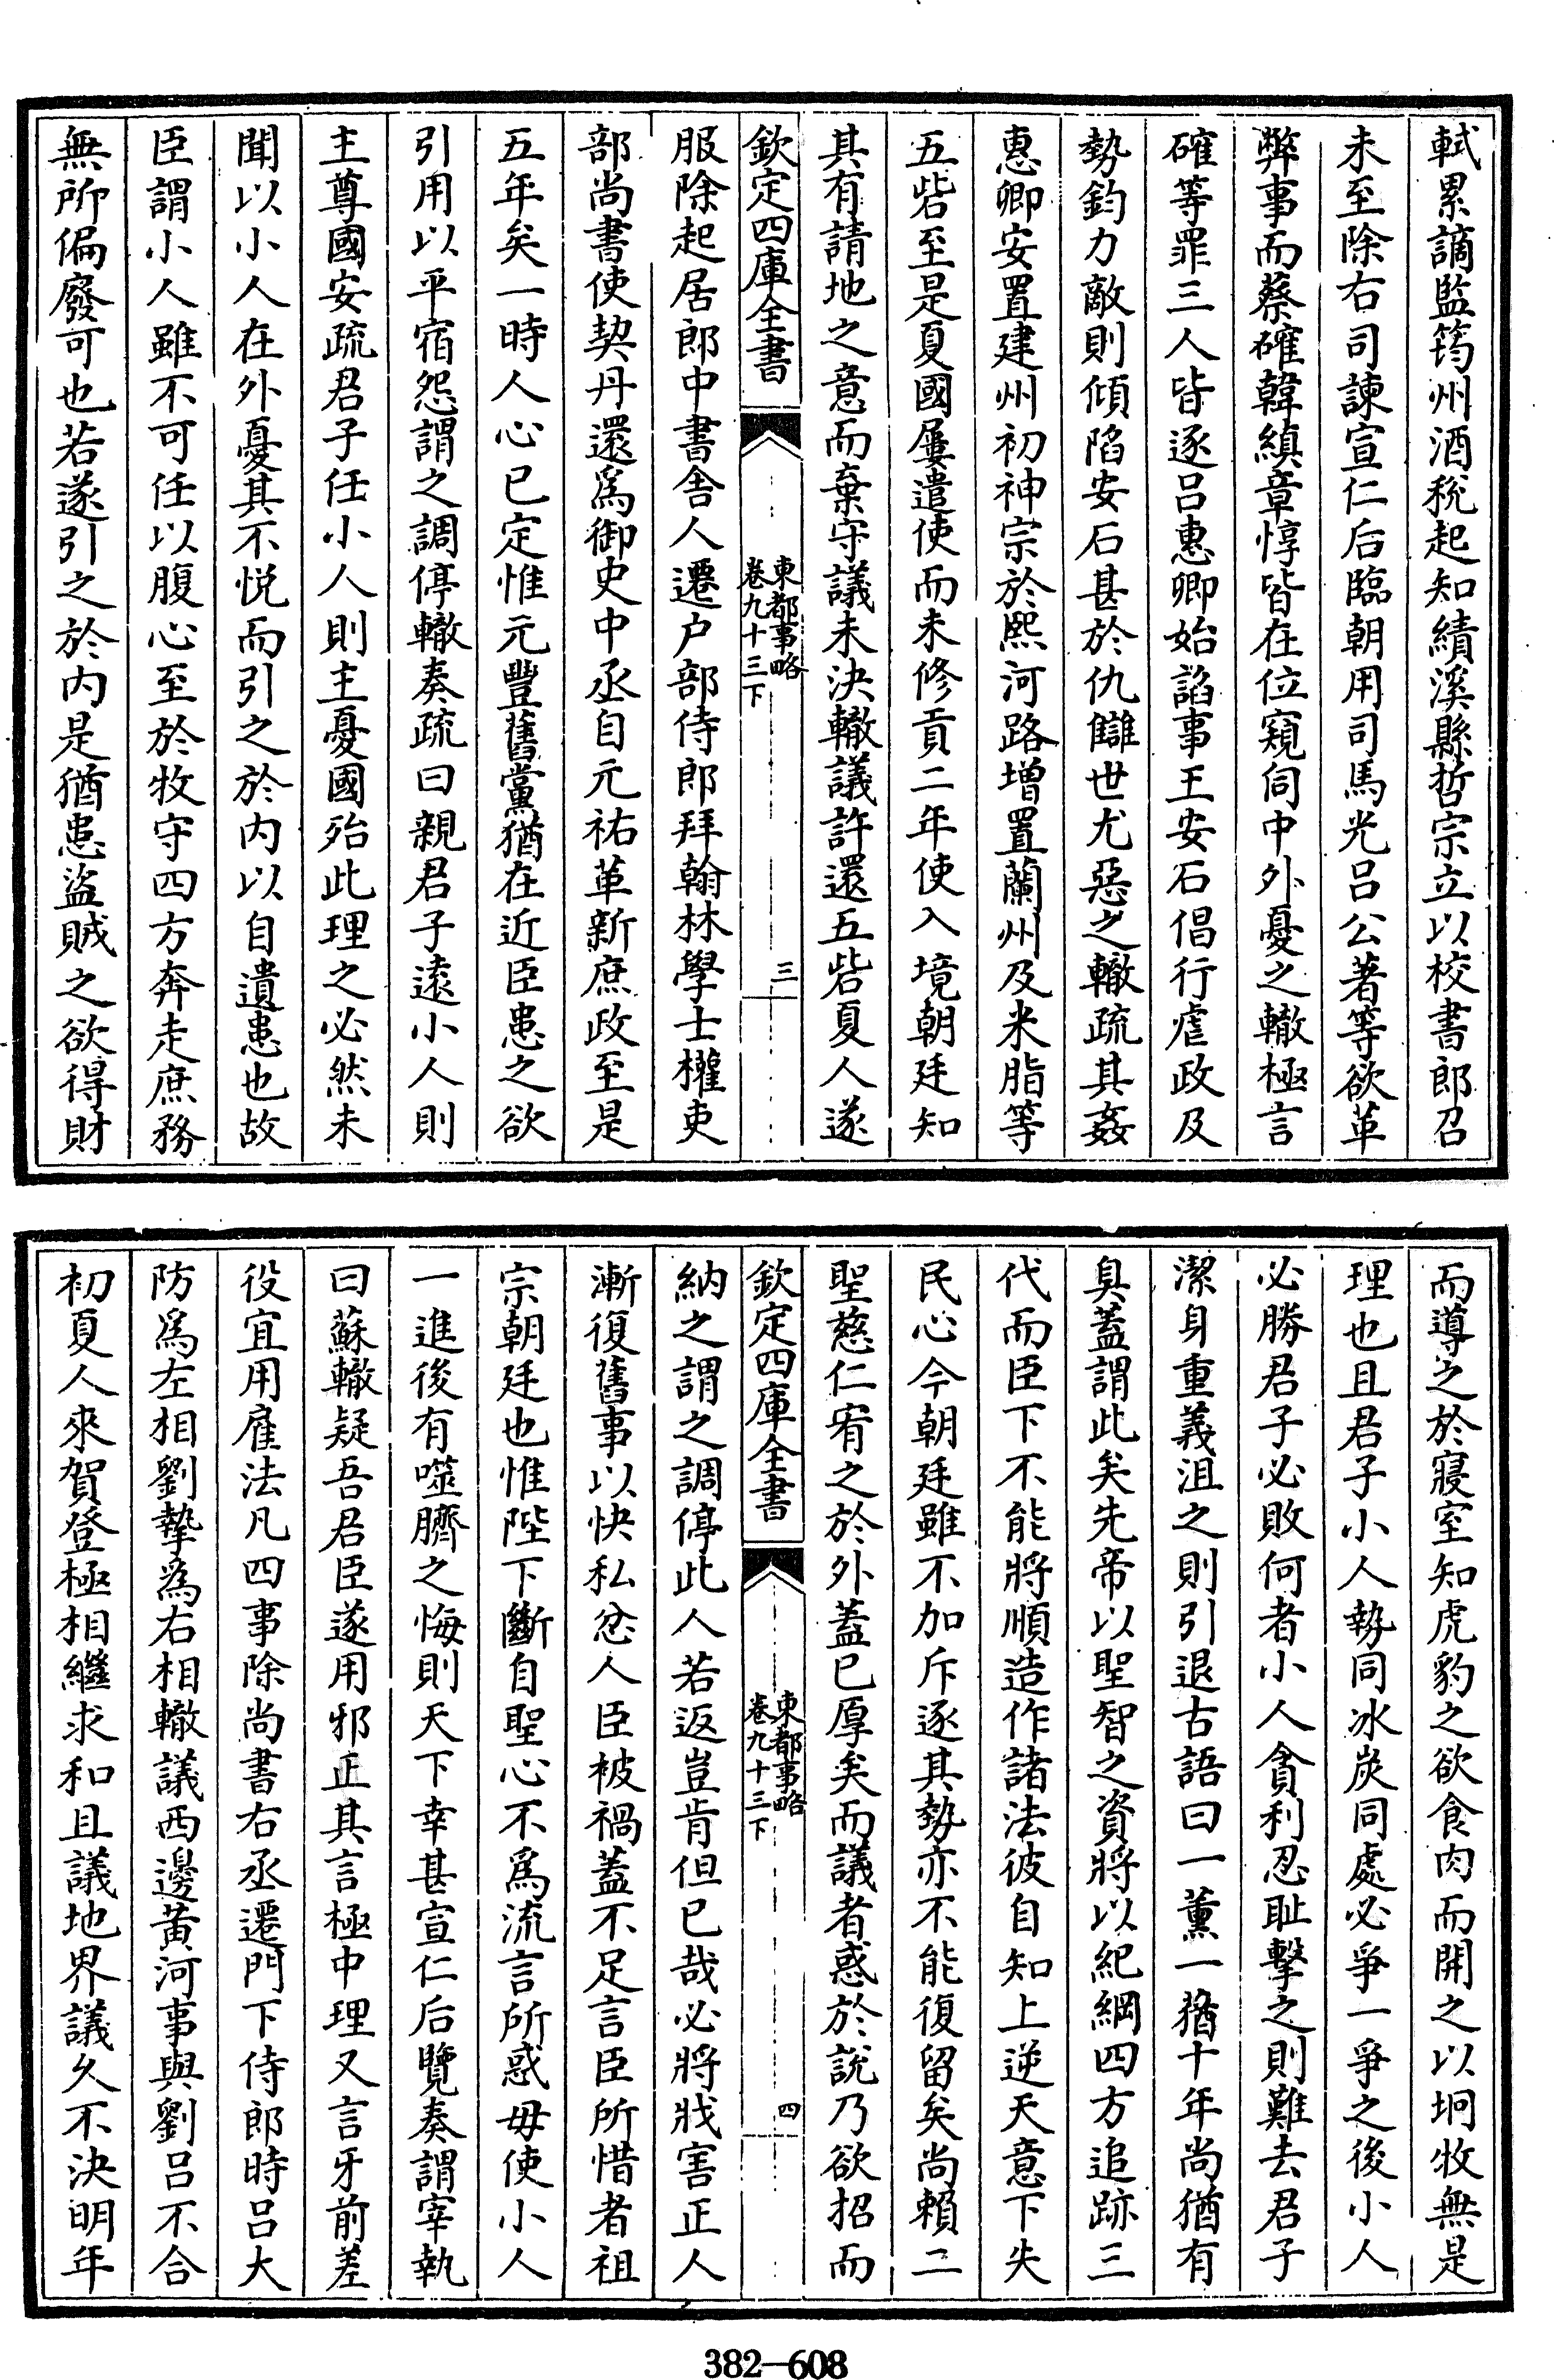 軾累謫監筠州酒稅起知績溪縣哲宗立以校書郎召
未至除右司諫宣仁后臨朝用司馬光呂公著等欲革
弊事而蔡確韓縝章惇皆在位窺伺中外憂之轍極言
確等罪三人皆逐呂惠卿始諂事王安石倡行虐政及
勢鈞力敵則傾陷安石甚於仇讎世尤惡之轍疏其姦
惠卿安置建州初神宗於熙河路增置蘭州及米脂等
五砦至是夏國屢遣使而未修貢二年使入境朝廷知
其有請地之意而棄守議未決轍議許還五砦夏人遂
欽定四庫全書
東都事略
卷九十三下
三
服除起居郎中書舍人遷户部侍郎拜翰林學士權吏
部尚書使契丹還爲御史中丞自元祐革新庶政至是
五年矣一時人心已定惟元豐舊黨猶在近臣患之欲
引用以平宿怨謂之調停轍奏疏曰親君子遠小人則
主尊國安疏君子任小人則主憂國殆此理之必然未
聞以小人在外憂其不悅而引之於内以自遺患也故
臣謂小人雖不可任以腹心至於牧守四方奔走庶務
無所偏廢可也若遂引之於内是猶患盜賊之欲得財
而導之於寢室知虎豹之欲食肉而開之以坰牧無是
理也且君子小人勢同冰炭同處必爭一爭之後小人
必勝君子必敗何者小人貪利忍耻擊之則難去君子
潔身重義沮之則引退古語曰一薰一蕕十年尚猶有
臭蓋謂此矣先帝以聖智之資將以紀綱四方追跡三
代而臣下不能將順造作諸法彼自知上逆天意下失
民心今朝廷雖不加斥逐其勢亦不能復留矣尚賴二
聖慈仁宥之於外蓋已厚矣而議者惑於說乃欲招而
欽定四庫全書
東都事略
卷九十三下
四
納之謂之調停此人若返豈肯但已哉必將戕害正人
漸復舊事以快私忿人臣被禍蓋不足言臣所惜者祖
宗朝廷也惟陛下斷自聖心不爲流言所惑毋使小人
一進後有噬臍之悔則天下幸甚宣仁后覽奏謂宰執
曰蘇轍疑吾君臣遂用邪正其言極中理又言牙前差
役宜用雇法凡四事除尚書右丞遷門下侍郎時呂大
防爲左相劉摯爲右相轍議西邊黃河事與劉呂不合
初夏人來賀登極相繼求和且議地界議久不決明年
382—608